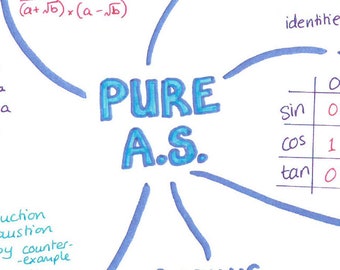 (a+√b)×(a-√b)
identitie
PURE
A.S.
0
sin 0
cos 1
tan 0
a
uction
austion
by counter-
-example